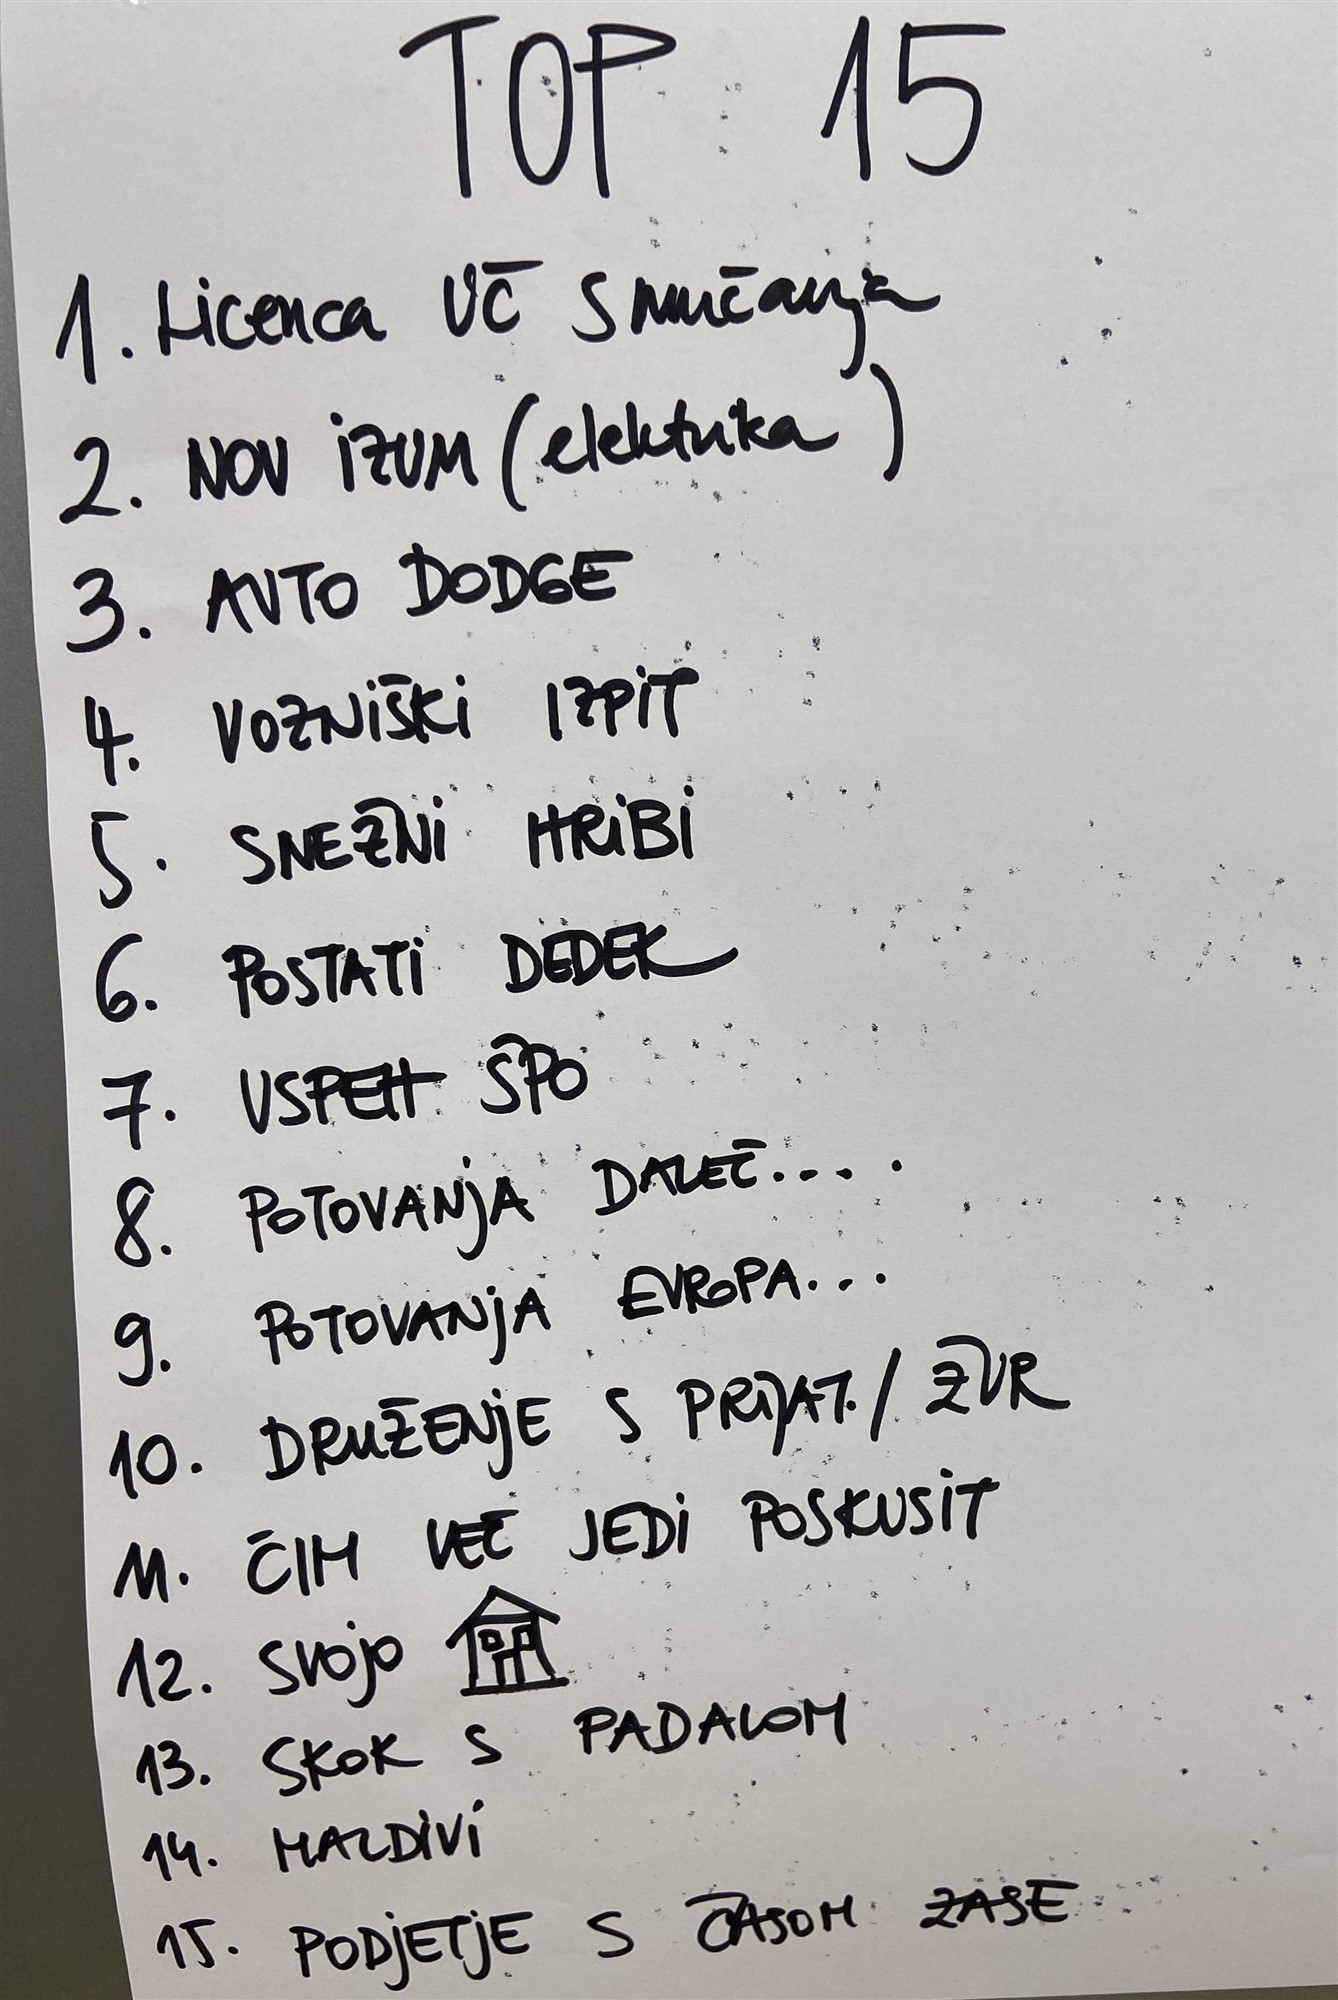 TOP 15
1. Licenca UČ smučanja
2. NOV IZUM (elektrika)
3. AVTO DODGE
4. VOZNIŠKI IZPIT
5. SNEŽNI HRIBI
6. POSTATI DEDEK
7. USPEH ŠPO
8. POTOVANJA DALEČ....
9. POTOVANJA EVROPA...
10. DRUŽENJE S PRIJAT. / ŽUR
11. ČIM VEČ JEDI POSKUSIT
12. SVOJO
13. SKOK S PADALOM
14. MALDIVI
15. PODJETJE S ČASOM ZASE